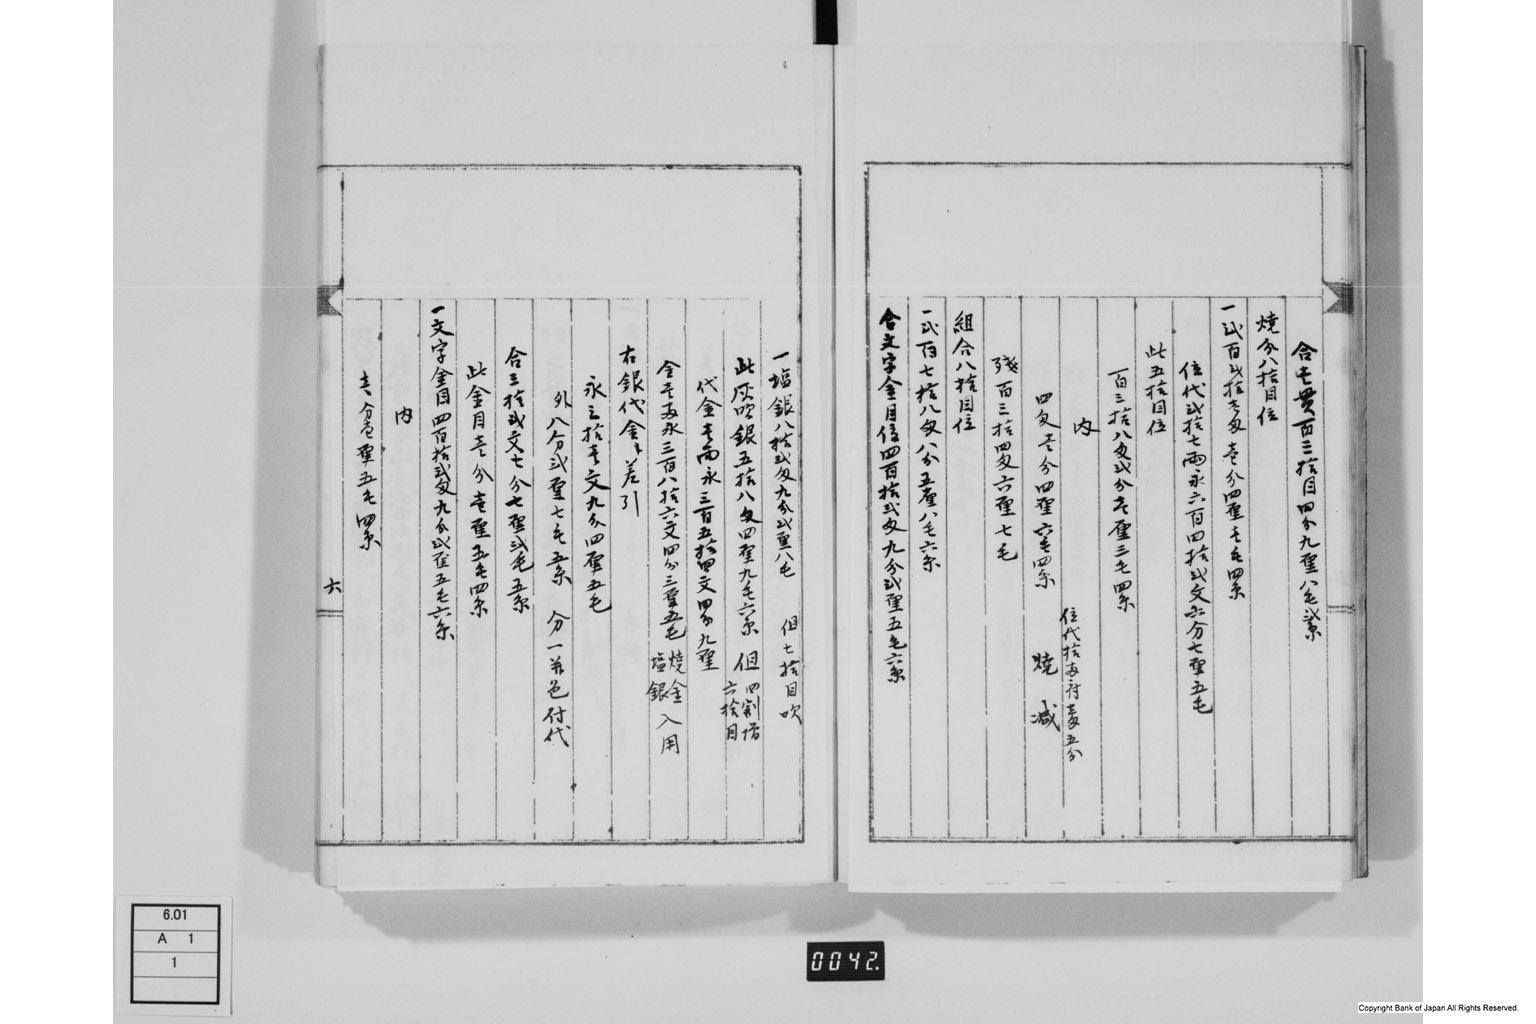 合壱貫百三拾目四分九厘八毛弐糸
焼分八拾目位
一弐百弐拾壱匁壱分四厘壱毛四糸
位代弐拾七両永六百四拾弐文六分七厘五毛
此五拾目位
百三拾八匁弐分壱厘三毛四糸
内
位代拾両附壱匁五分
四匁壱分四厘六毛四糸 焼減
残百三拾四匁六厘七毛
組合八拾目位
一弐百七拾八匁八分五厘八毛六糸
合文字金目位四百拾弐匁九分弐厘五毛六糸
一塩銀八拾弐匁九分弐厘八毛 但七拾目吹
此灰吹銀五拾八匁四厘九毛六糸 但四割増六拾目
代金壱両永三百五拾四文四分九厘
金壱両永三百八拾六文四分三厘五毛 焼金塩銀入用
右銀代金ト差引
永三拾壱文九分四厘五毛
外八分弐厘七毛五糸 分一并色付代
合三拾弐文七分七厘弐毛五糸
此金目壱分壱厘五毛四糸
一文字金目四百拾弐匁九分弐厘五毛六糸
内
壱分壱厘五毛四糸
六
6.01
A 1
1
0042.
Copyright Bank of Japan All Rights Reserved.